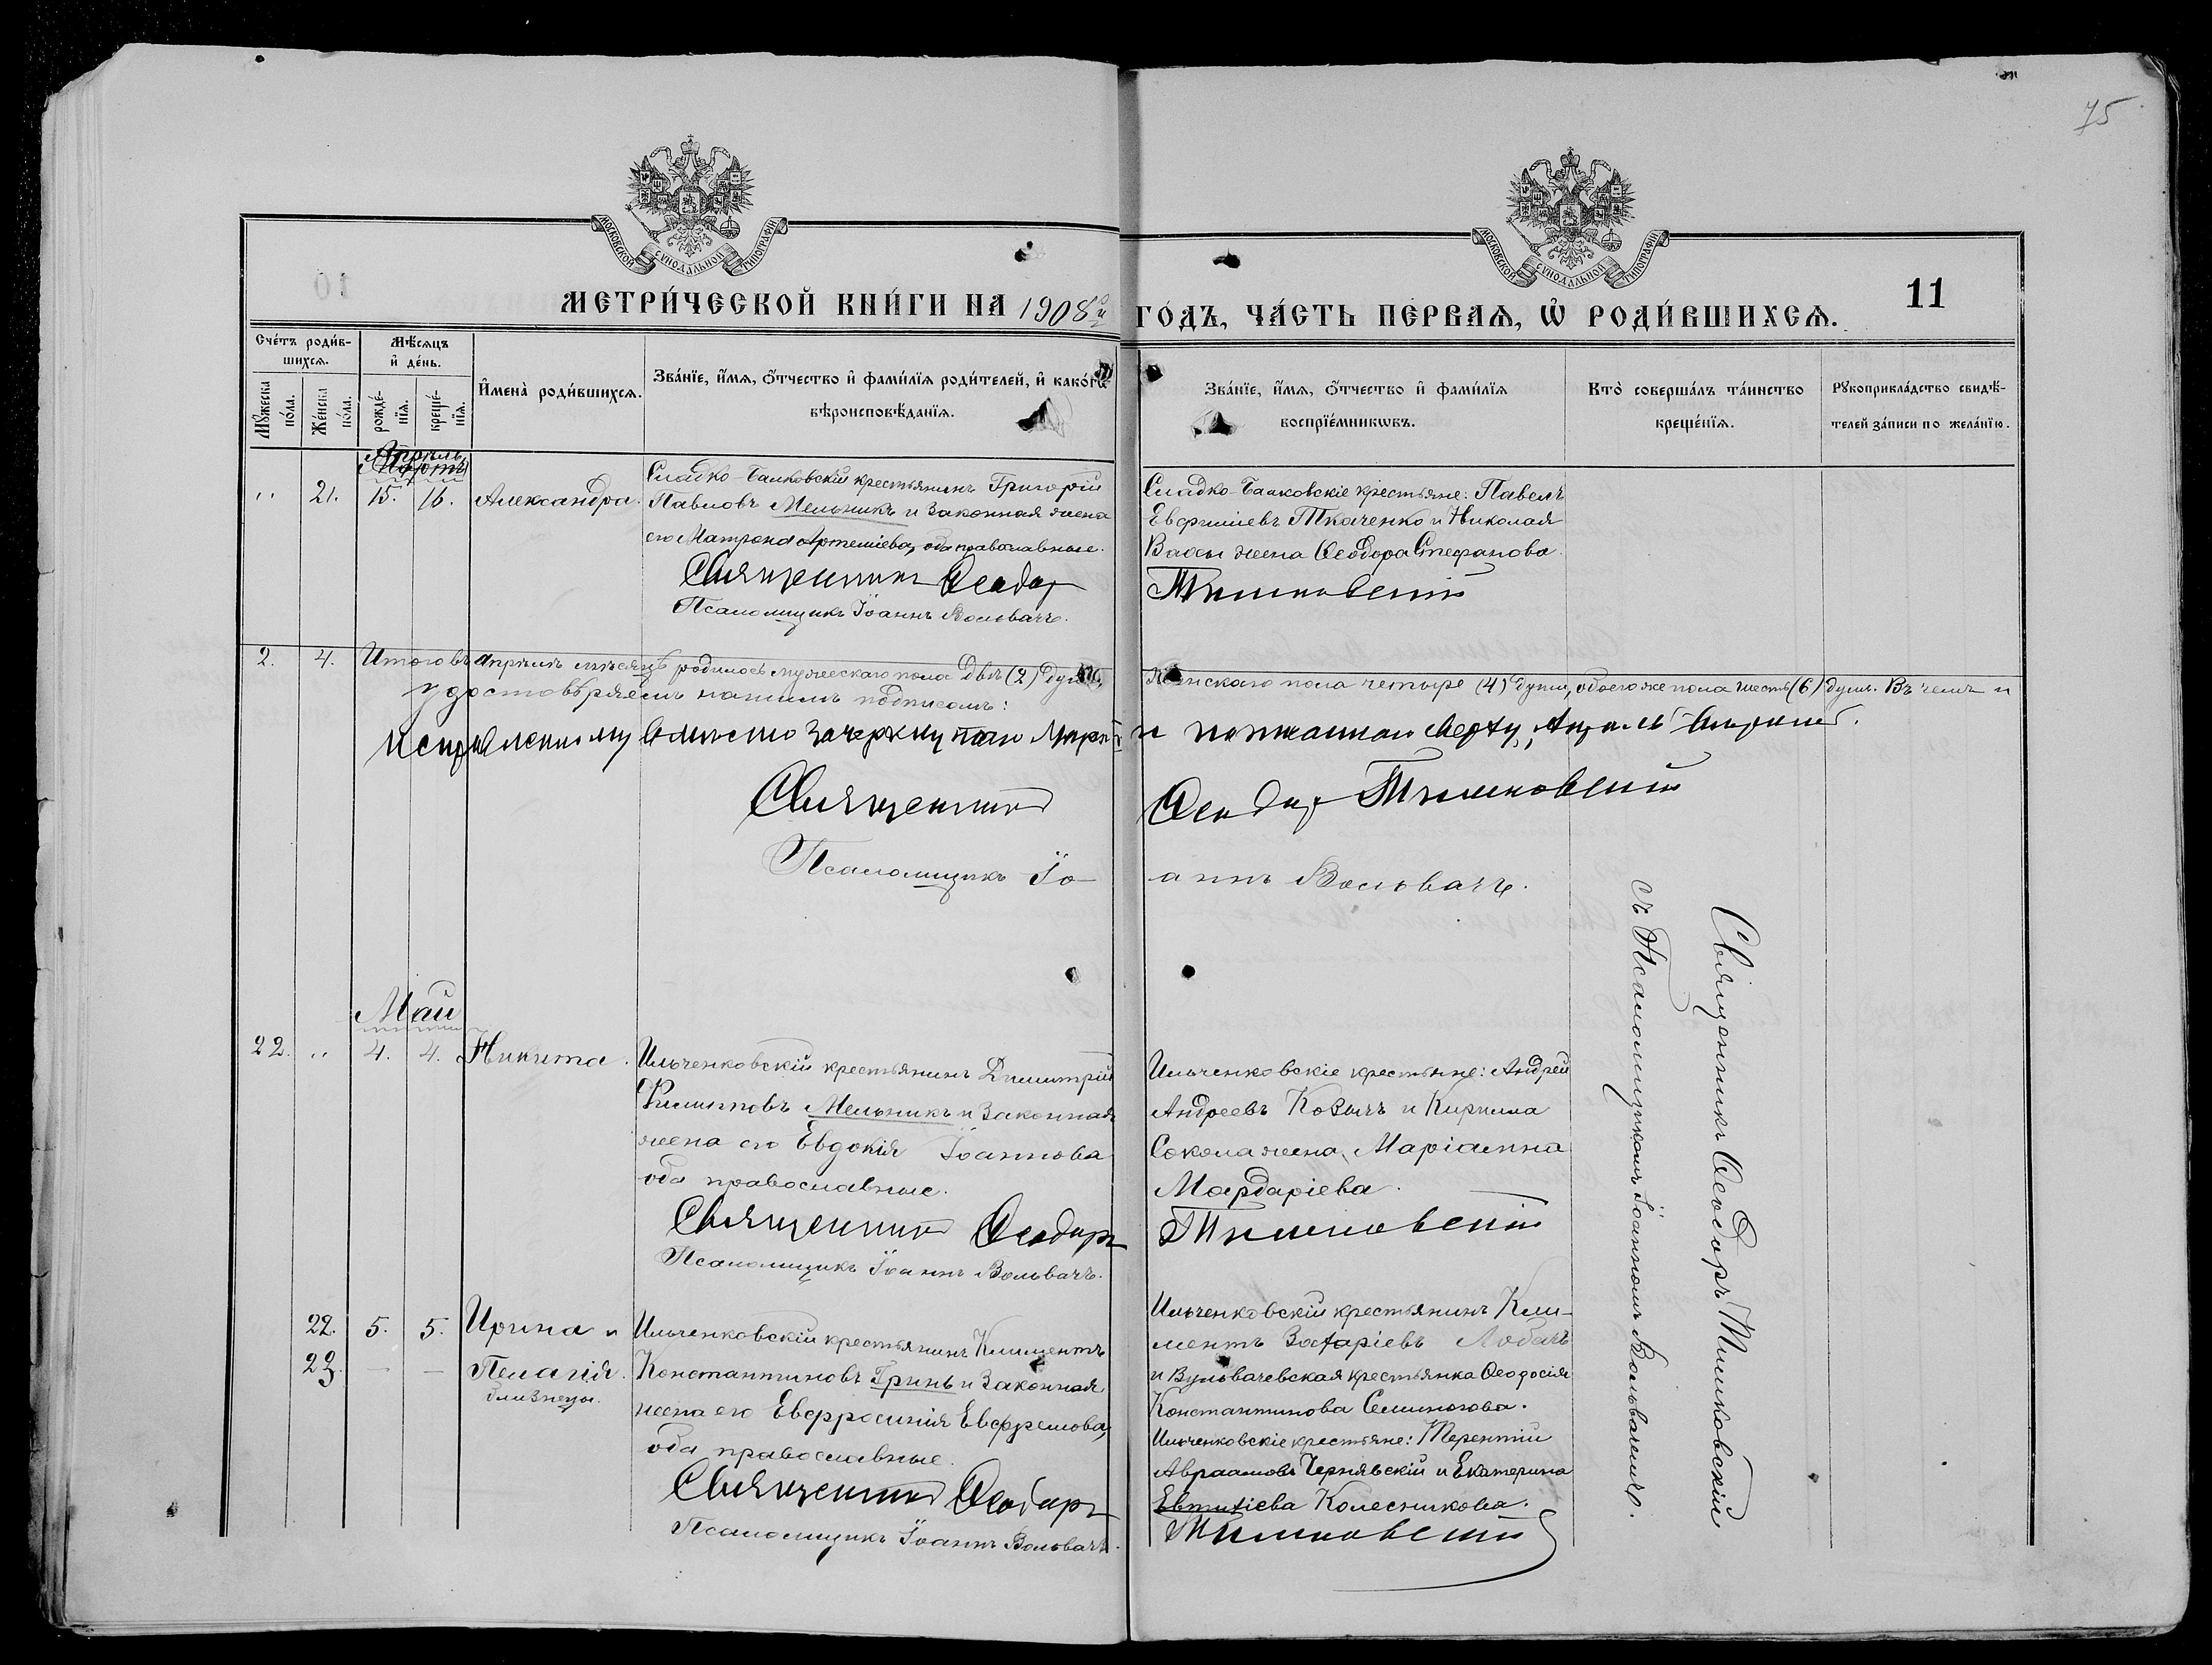 75
МОСКОВСКОЙ СУНОДАЛЬНОЙ ТИПОГРАФІИ
МОСКОВСКОЙ СУНОДАЛЬНОЙ ТИПОГРАФІИ
МЕТРИ́ЧЕСКОЙ КНИ́ГИ НА 1908й
ГО́ДЪ, ЧА́СТЬ ПЕ́РВАѦ, Ѡ҆ РОДИ́ВШИХСѦ.
11
Сче́тъ роди́в-
шихсѧ.
Мꙋ́жеска
по́ла.
Же́нска
по́ла.
Мѣ́сѧцъ
и҆ де́нь.
рожде́-
нїѧ.
креще́-
нїѧ.
И҆мена̀ роди́вшихсѧ.
Зва́нїе, и҆́мѧ, ѻ҆́тчество и҆ фами́лїѧ роди́телей, и҆ како́гѡ
вѣроисповѣ́данїѧ.
Зва́нїе, и҆́мѧ, ѻ҆́тчество и҆ фами́лїѧ
воспрїе́мникѡвъ.
Кто̀ соверша́лъ та́инство
креще́нїѧ.
Рꙋкоприкла́дство свидѣ́-
телей за́писи по жела́нїю.
Апрѣль
Мартъ
„ 21. 15. 16. Александра.
Сладко-Балковскій крестьянинъ Григорій
Павловъ Мельникъ и законная жена
его Матрона Артеміева, оба православные.
Священникъ Ѳеодоръ
Псаломщикъ Іоаннъ Вольвачъ.
Сладко-Балковскіе крестьяне: Павелъ
Евфиміевъ Ткаченко и Николая
Васы жена Ѳеодора Стефанова.
Тимковскій
2. 4. Итого въ Апрѣлѣ мѣсяцѣ родилось мужескаго пола двѣ (2) души,
женскаго пола четыре (4) души, обоего же пола шесть (6) душъ. Въ чемъ и
удостовѣряемъ нашимъ подписомъ:
Исправленному вмѣсто зачеркнутаго Мартъ
и написанному сверху, Апрѣль вѣрить.
Священникъ
Ѳеодоръ Тимковскій
Псаломщикъ Іо-
аннъ Вольвачъ.
Май
22. „ 4. 4. Никита.
Ильченковскій крестьянинъ Димитрій
Филипповъ Мельникъ и законная
жена его Евдокія Іоаннова
оба православные.
Священникъ Ѳеодоръ
Псаломщикъ Іоаннъ Вольвачъ.
Ильченковскіе крестьяне: Андрей
Андреевъ Козычъ и Кирилла
Сокола жена, Маріанна
Мардаріева.
Тимковскій
22. 5. 5. Ирина и
23. — — Пелагія.
близнецы.
Ильченковскій крестьянинъ Климентъ
Константиновъ Гринь и законная
жена его Евфросинія Евфремова,
оба православные.
Священникъ Ѳеодоръ
Псаломщикъ Іоаннъ Вольвачъ.
Ильченковскій крестьянинъ Кли-
ментъ Захаріевъ Лобачъ
и Вульвачевская крестьянка Ѳеодосія
Константинова Семиногова.
Ильченковскіе крестьяне: Терентій
Авраамовъ Чернявскій и Екатерина
Евтихіева Колесникова.
Тимковскій
Священникъ Ѳеодоръ Тимковскій
съ Псаломщикомъ Іоанномъ Вольвачемъ.